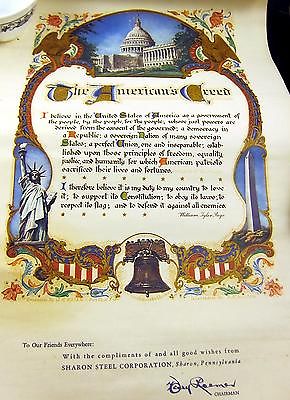 The American's Creed
I believe in the United States of America as a government of
the people, by the people, for the people; whose just powers are
derived from the consent of the governed; a democracy in
a Republic; a sovereign Nation of many sovereign
States; a perfect Union, one and inseparable; established
upon those principles of freedom, equality,
justice, and humanity for which American patriots
sacrificed their lives and fortunes.
I therefore believe it is my duty to my country to love
it; to support its Constitution; to obey its laws; to
respect its flag; and to defend it against all enemies.
William Tyler Page
To Our Friends Everywhere:
With the compliments of and all good wishes from
SHARON STEEL CORPORATION, Sharon, Pennsylvania
CHAIRMAN